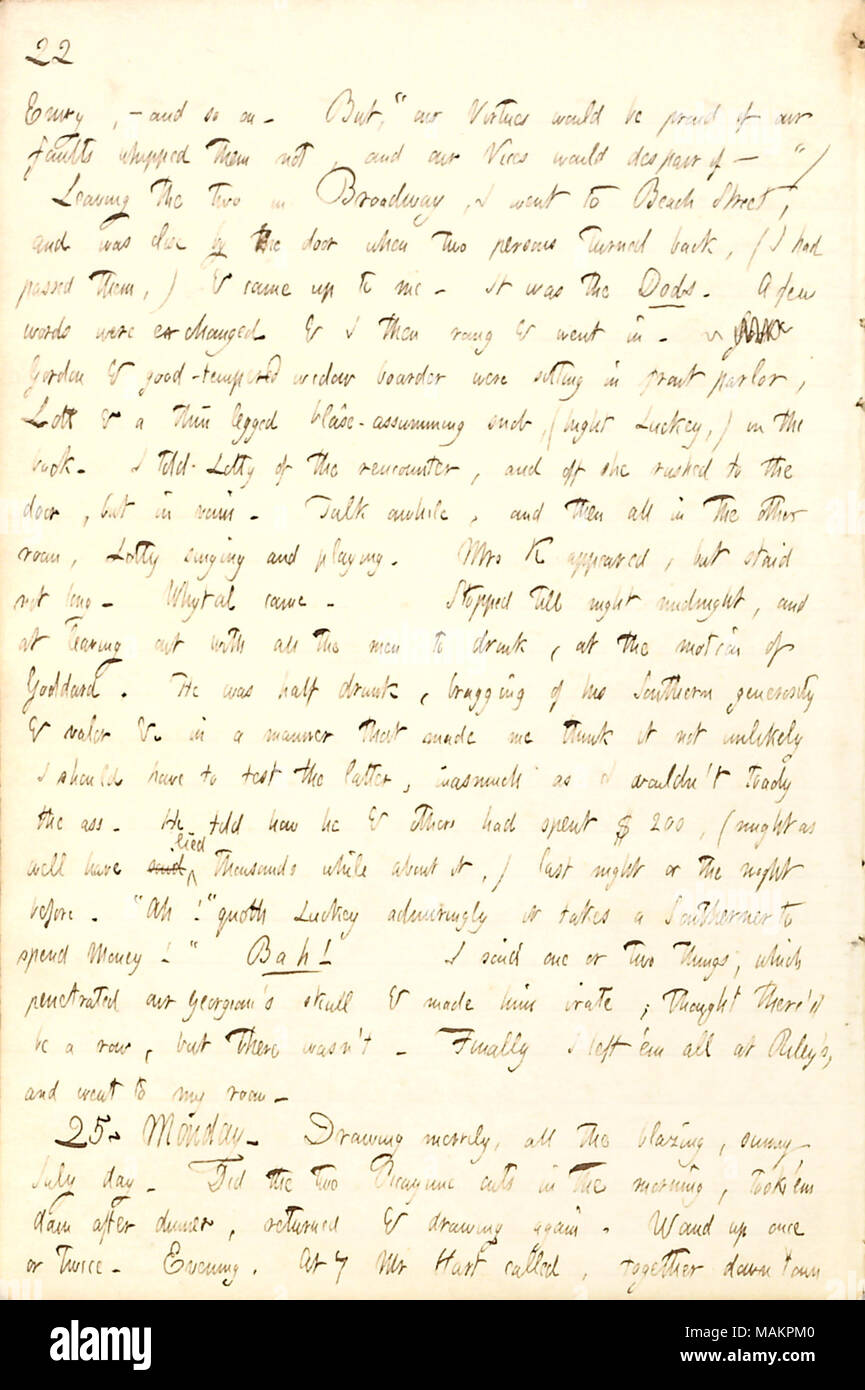 22
Envy, - and so on. But, "our Virtues would be proud if our
faults whipped them not, and our Vices would despair if — ")
Leaving the two in Broadway, I went to Beach Street,
and was close by the door when two persons turned back, (I had
passed them,) & came up to me. It was the Dobs. A few
words were exchanged & I then rang & went in.
Gordon & good-tempered widow boarder were sitting in front parlor,
Lott & a thin legged blâse-assumming snob, (hight Luckey,) in the
back. I told Lotty of the rencounter, and off she rushed to the
door, but in vain. Talk awhile, and then all in the other
room, Lotty singing and playing. Mrs K appeared, but staid
not long. Whytal came. Stopped till night midnight, and
at leaving out with all the men to drink, at the motion of
Goddard. He was half drunk, bragging of his Southern generosity
& valor &c in a manner that made me think it not unlikely
I should have to test the latter, inasmuch as I wouldn't toady
the ass. He told how he & others had spent $200, (might as
well have said lied thousands while about it,) last night or the night
before. "Ah!" quoth Luckey admiringly it takes a Southerner to
spend Money!" Bah! I said one or two things, which
penetrated our Georgian's skull & made him irate; thought there'd
be a row, but there wasn't. Finally I left 'em all at Riley's,
and went to my room.
25. Monday. Drawing merrily, all the blazing, sunny
July day. Did the two Picayune cuts in the morning, took 'em
down after dinner, returned & drawing again. Waud up once
or twice. Evening. At 7 Mr Hart called, together down town
alamy
Image ID: MAKPM0
www.alamy.com